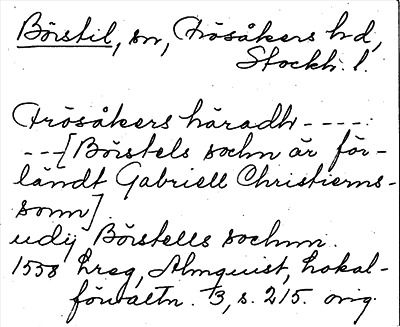 Börstil, sn, Frösåkers hd,
Stockh. l.
Frösåkers häradh - - - -
- - - [Börstels sochn är för-
ländt Gabriell Christierns-
sonn]
udij Börstells sochnn.
1558 hrsg, Almquist, Lokal-
förvaltn. 3, s. 215. orig.